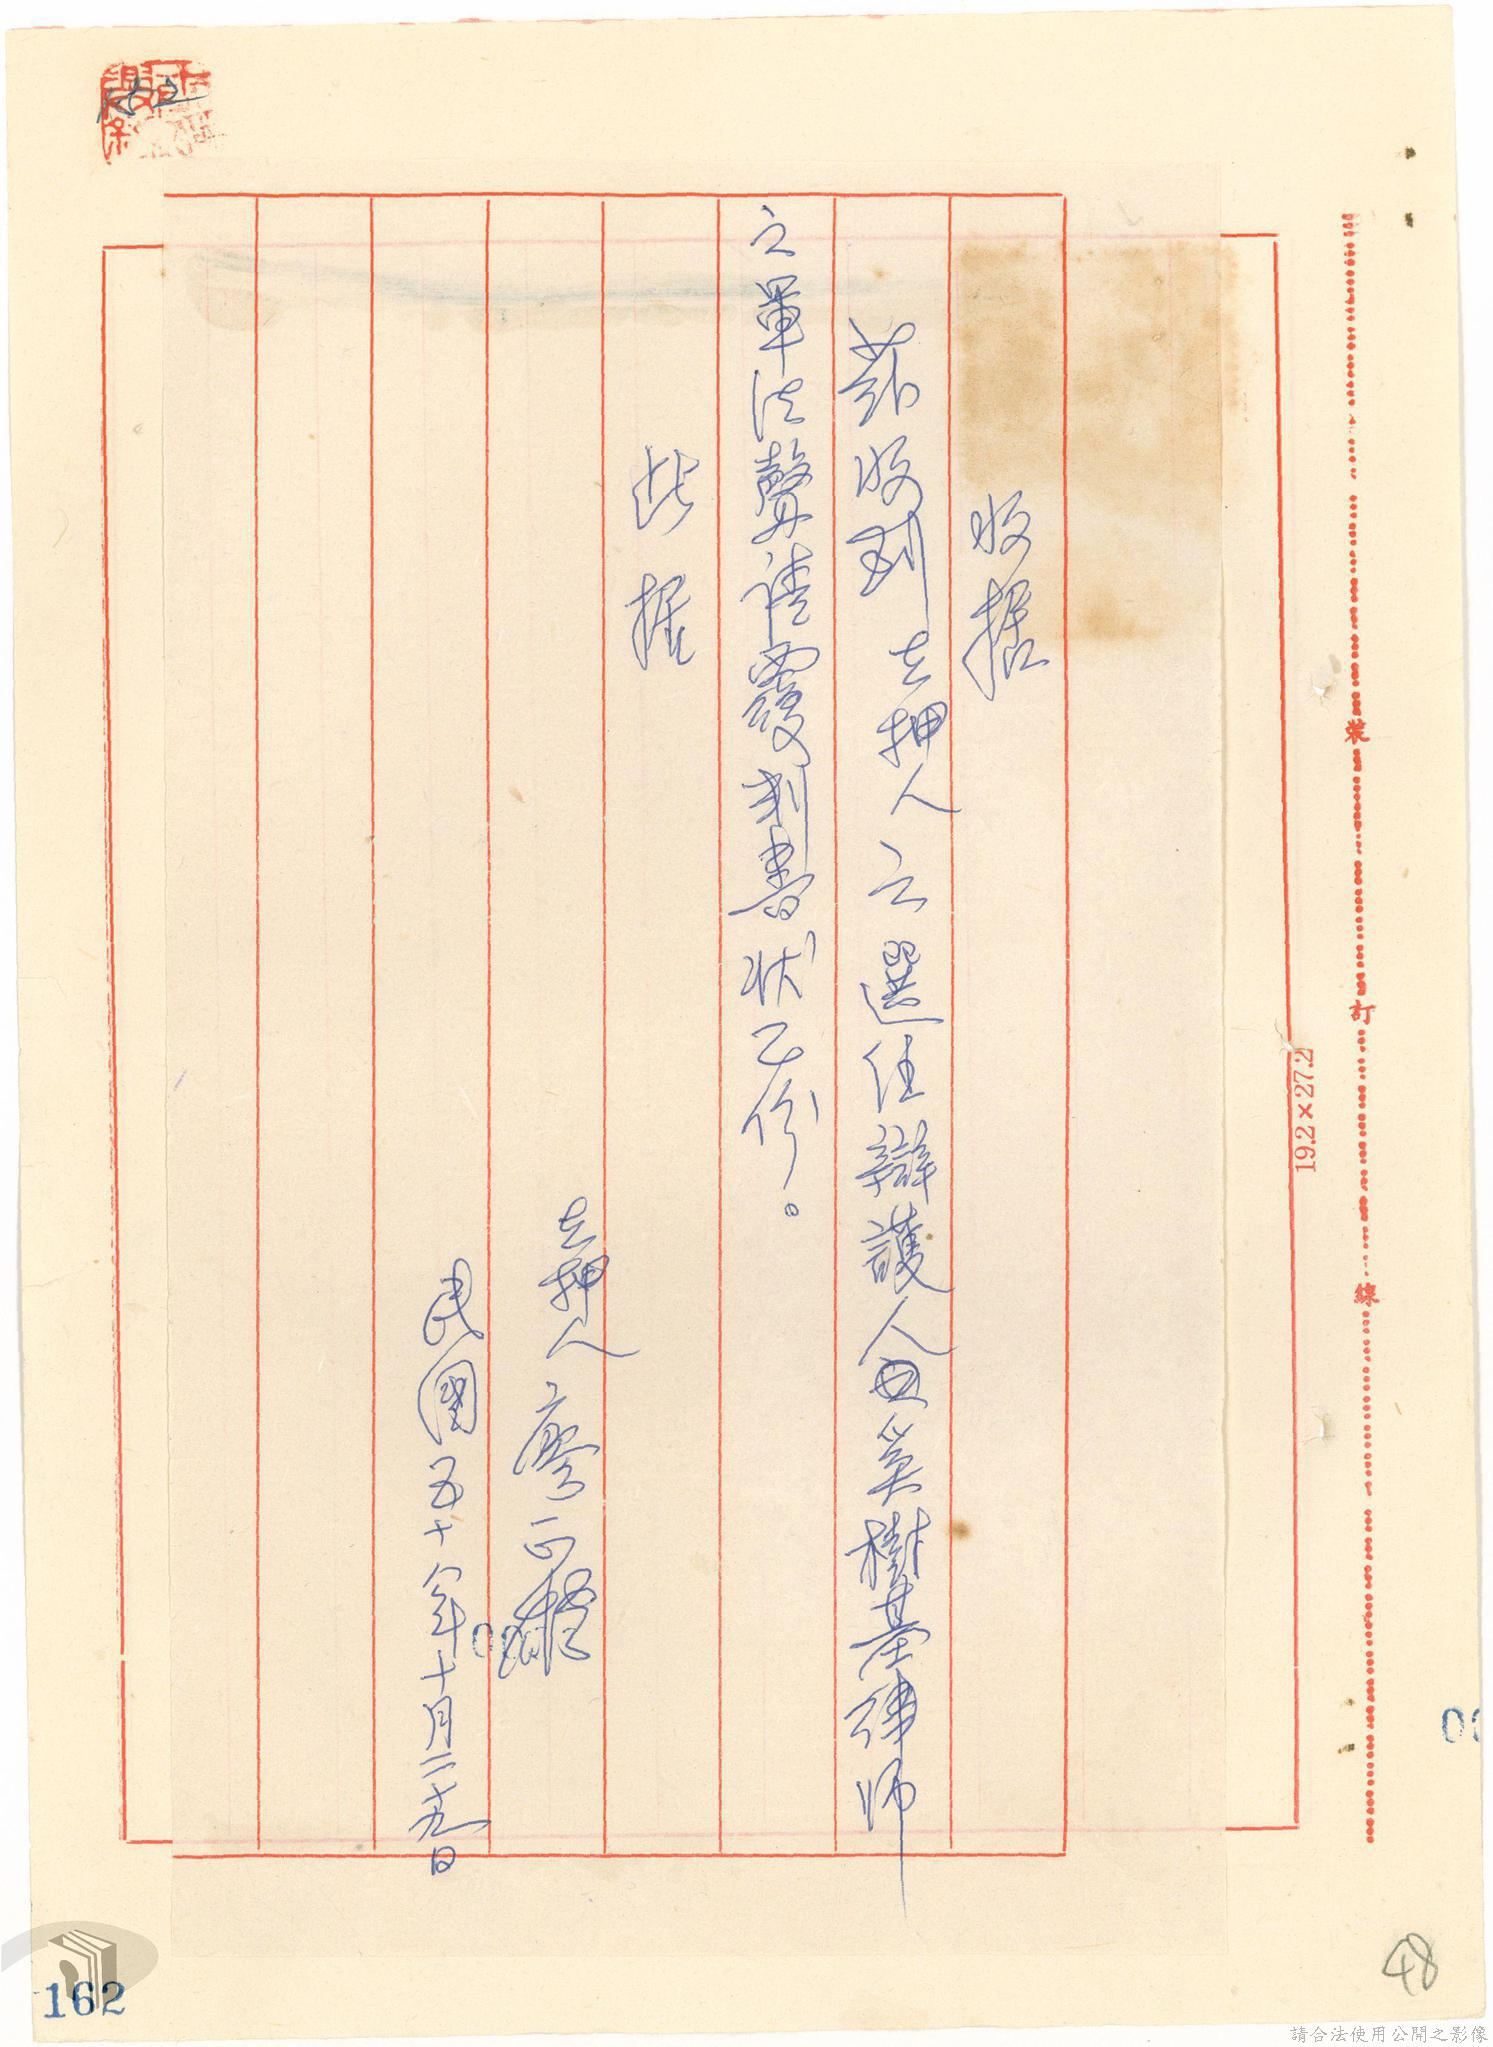 收據
茲收到 在押人之選任辯護人吳樹基律師
之軍法聲請覆判書狀乙份。
此據
在押人 廖正
民國五十八年十月二十九日
裝
訂
線
19.2×27.2
162
48
請合法使用公開之影像